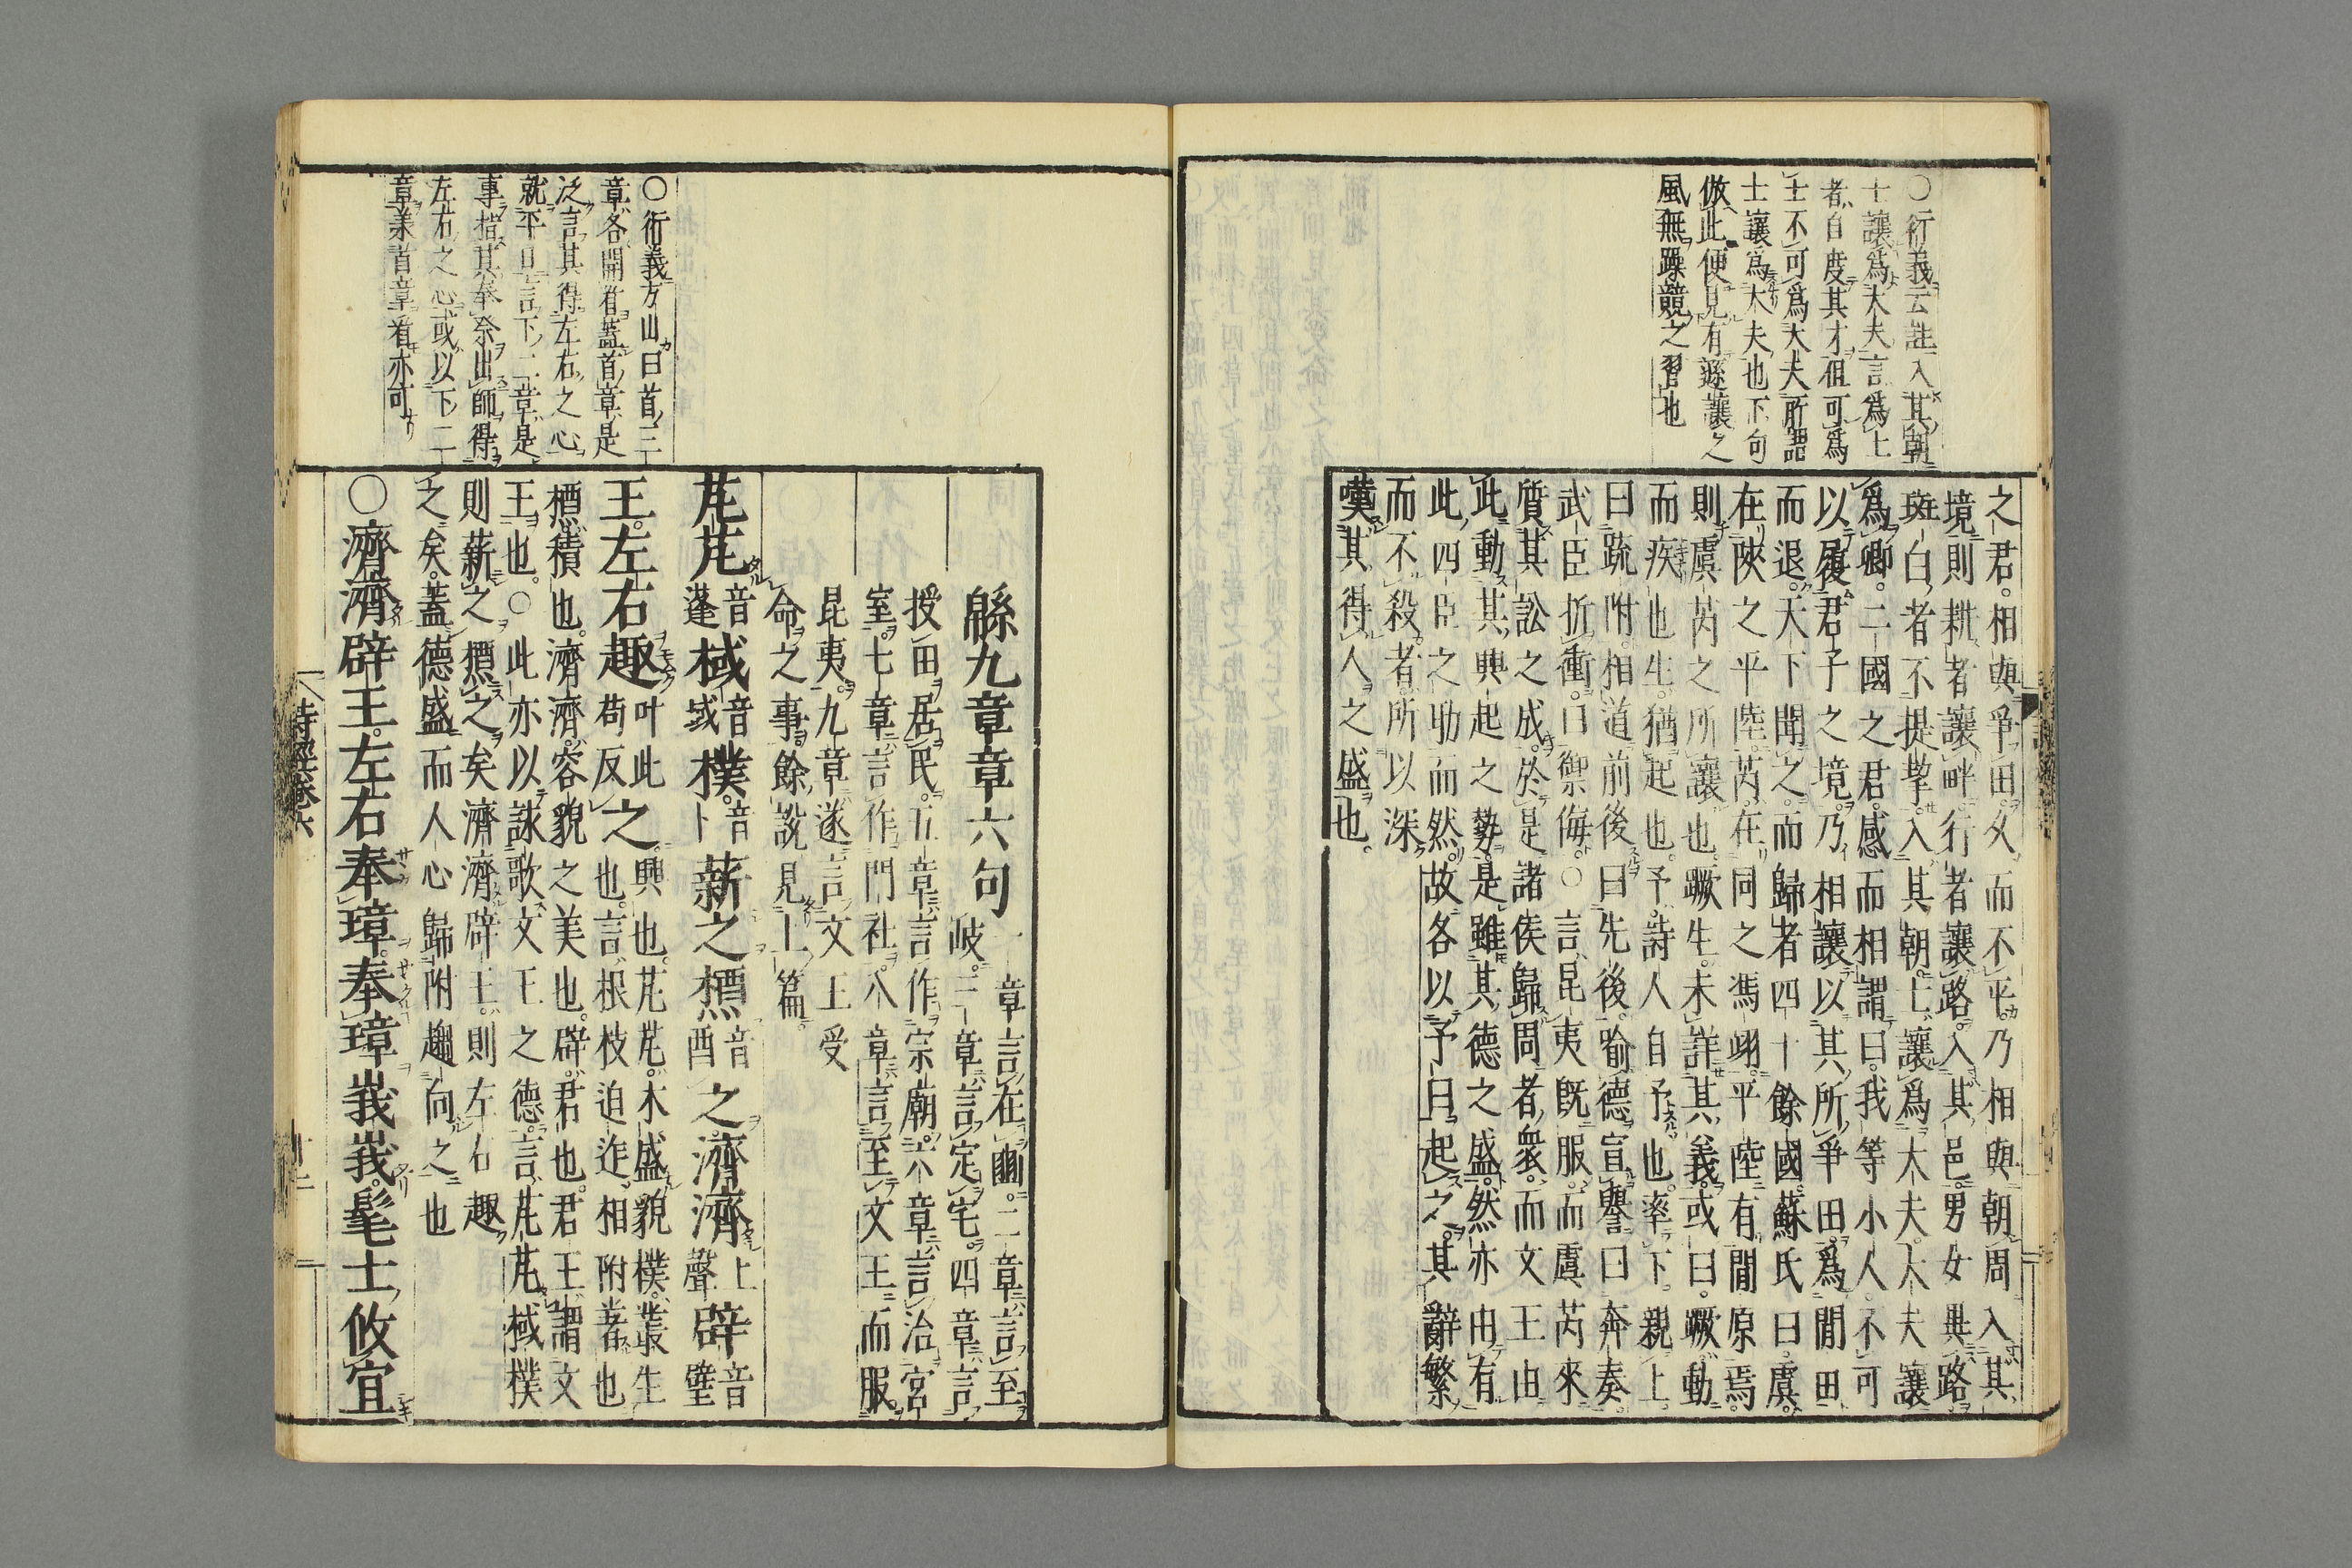 ○衍義云註入其朝
士讓爲大夫言爲上
者自度其才徂可爲
士不可爲大夫所謂
士讓爲大夫也下句
倣此便見有遜讓之
風無躁競之習也
之君相與爭田久而不平乃相與朝周入其
境則耕者讓畔行者讓路入其邑男女異路
斑白者不提挈入其朝士讓爲大夫大夫讓
爲卿二國之君感而相謂曰我等小人不可
以履君子之境乃相讓以其所爭田爲閒田
而退天下聞之而歸者四十餘國蘇氏曰虞
在陝之平陸芮在同之馮翊平陸有閒原焉
則虞芮之所讓也蹶生未詳其義或曰蹶動
而疾也生猶起也予詩人自予也率下親上
曰疏附相道前後曰先後喻德宣譽曰奔奏
武臣折衝曰禦侮○言昆夷既服而虞芮來
質其訟之成於是諸侯歸周者衆而文王由
此動其興起之勢是雖其德之盛然亦由有
此四臣之助而然故各以予曰起之其辭繁
而不殺者所以深
嘆其得人之盛也
緜九章章六句
一章言在豳二章言至
岐三章言定宅四章言
授田居民五章言作宗廟六章言治宮
室七章言作門社八章言至文王而服
昆夷九章遂言文王受
命之事餘說見上篇
○衍義方山曰首三
章各開看蓋首章是
泛言其得左右之心
就平日言下二章是
事指其奉祭出師得
左右之心或以下二
章美首章看亦可
芃芃音蓬棫音域樸音卜薪之槱音酉之濟濟上聲辟音璧
王左右趣叶此苟反之興也芃芃木盛貌樸叢生
也言根枝迫迮相附著也
槱積也濟濟容貌之美也辟君也君王謂文
王也○此亦以詠歌文王之德言芃芃棫樸
則薪之槱之矣濟濟辟王則左右趣
之矣蓋德盛而人心歸附趨向之也
○濟濟辟王左右奉璋奉璋峩峩髦士攸宜
詩經卷六